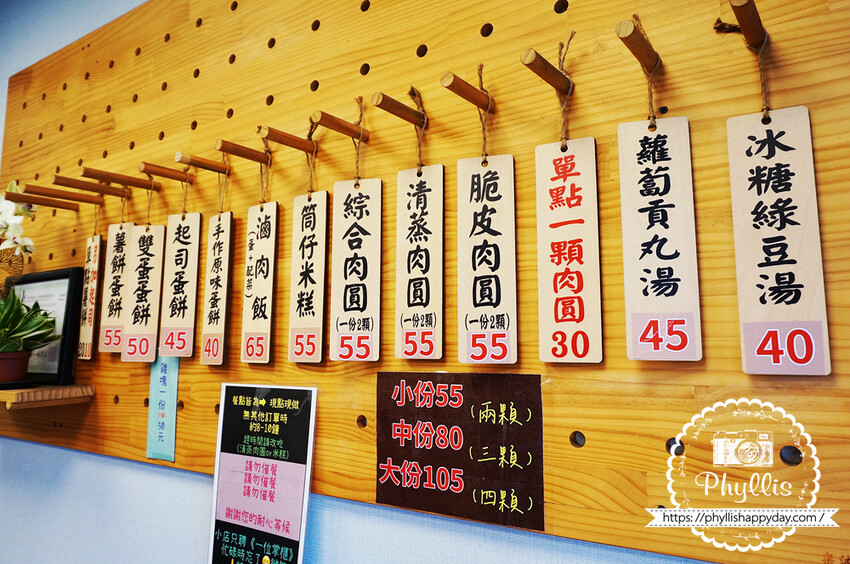 冰糖綠豆湯
40
蘿蔔貢丸湯
45
單點一顆肉圓
30
脆皮肉圓
(一份2顆)
55
清蒸肉圓
(一份2顆)
55
綜合肉圓
(一份2顆)
55
筒仔米糕
55
滷肉飯
(蛋+配菜)
65
手作原味蛋餅
40
起司蛋餅
45
雙蛋蛋餅
50
薯餅蛋餅
55
10
小份55(兩顆)
中份80(三顆)
大份105(四顆)
雞塊一份
50元
餐點皆為➡現點現做
無其他訂單時
約8-10鐘
趕時間請改吃
(清蒸肉圓or米糕)
請勿催餐
請勿催餐
請勿催餐
謝謝您的耐心等候
小店只聘《一位掌櫃》
忙碌時忘了
Phyllis
https://phyllishappyday.com/